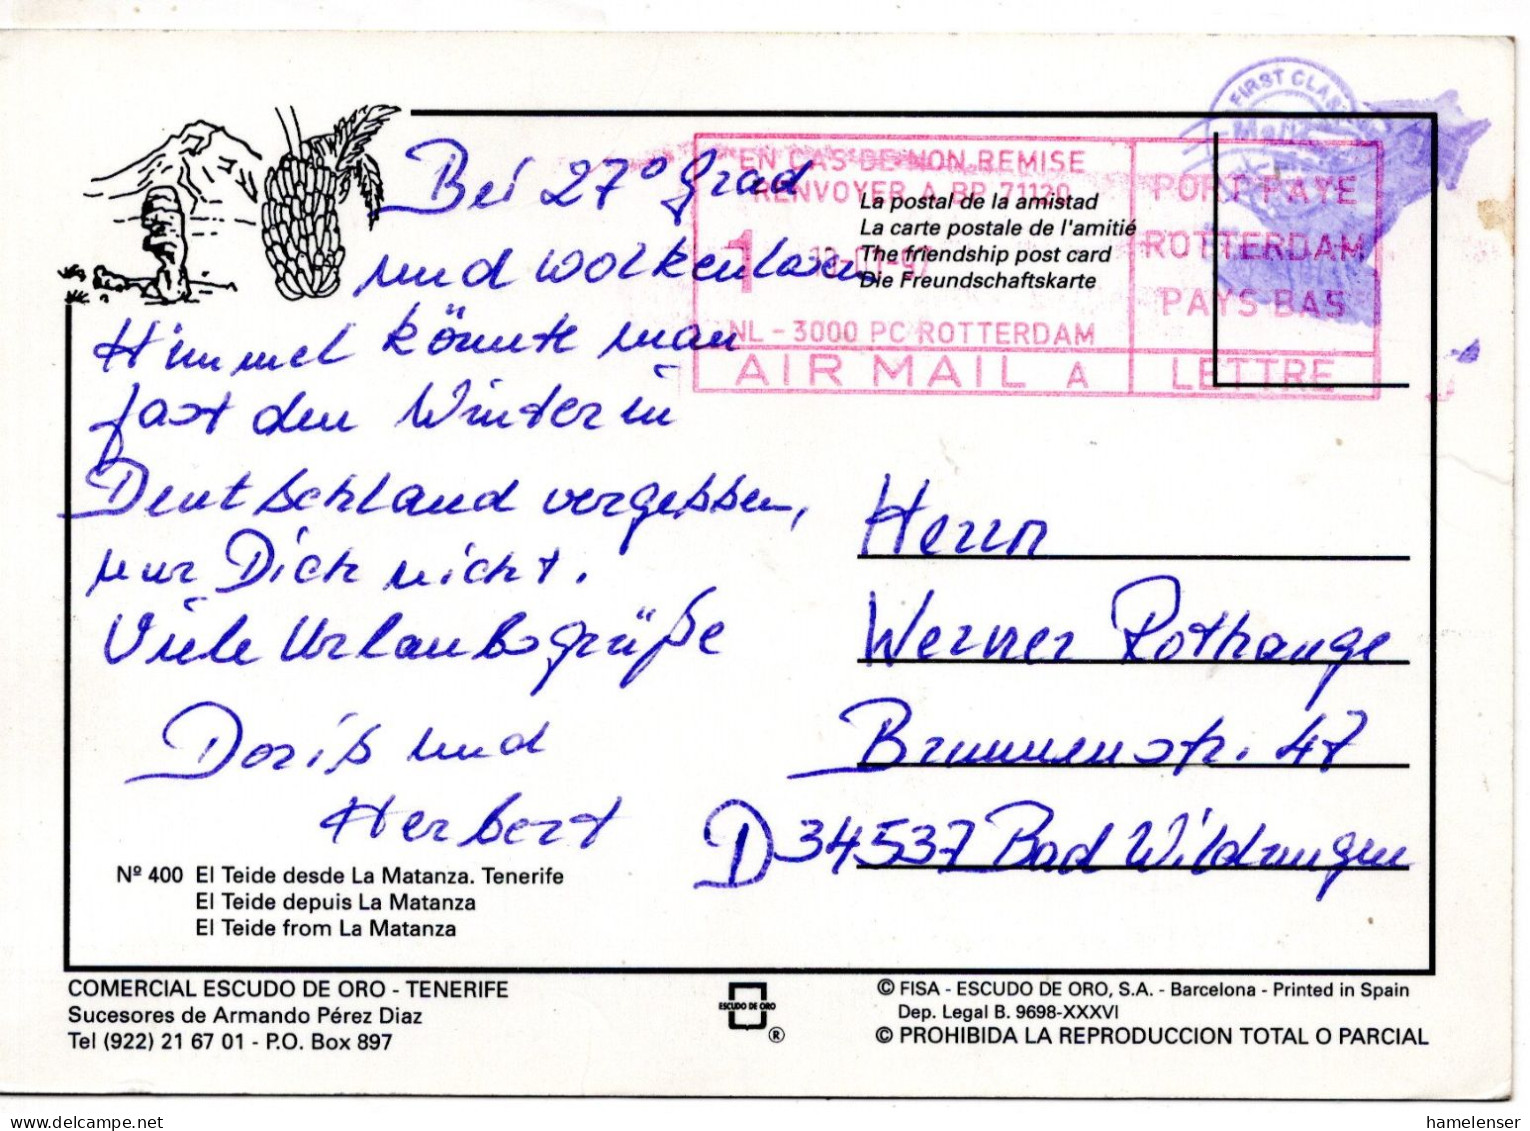 FIRST CLASS
EN CAS DE NON REMISE
RENVOYER A BP 71120
1
NL - 3000 PC ROTTERDAM
AIR MAIL A
PORT PAYE
ROTTERDAM
PAYS BAS
LETTRE
La postal de la amistad
La carte postale de l'amitié
The friendship post card
Die Freundschaftskarte
Bei 27° Grad
und wolkenlosem
Himmel könnte man
fast den Winter in
Deutschland vergessen,
nur Dich nicht.
Viele Urlaubsgrüße
Doris und
Herbert
Herrn
Werner Rothauge
Brunnenstr. 47
D 34537 Bad Wildungen
Nº 400 El Teide desde La Matanza. Tenerife
El Teide depuis La Matanza
El Teide from La Matanza
COMERCIAL ESCUDO DE ORO - TENERIFE
Sucesores de Armando Pérez Diaz
Tel (922) 21 67 01 - P.O. Box 897
ESCUDO DE ORO
®
© FISA - ESCUDO DE ORO, S.A. - Barcelona - Printed in Spain
Dep. Legal B. 9698-XXXVI
© PROHIBIDA LA REPRODUCCION TOTAL O PARCIAL
hamelenser